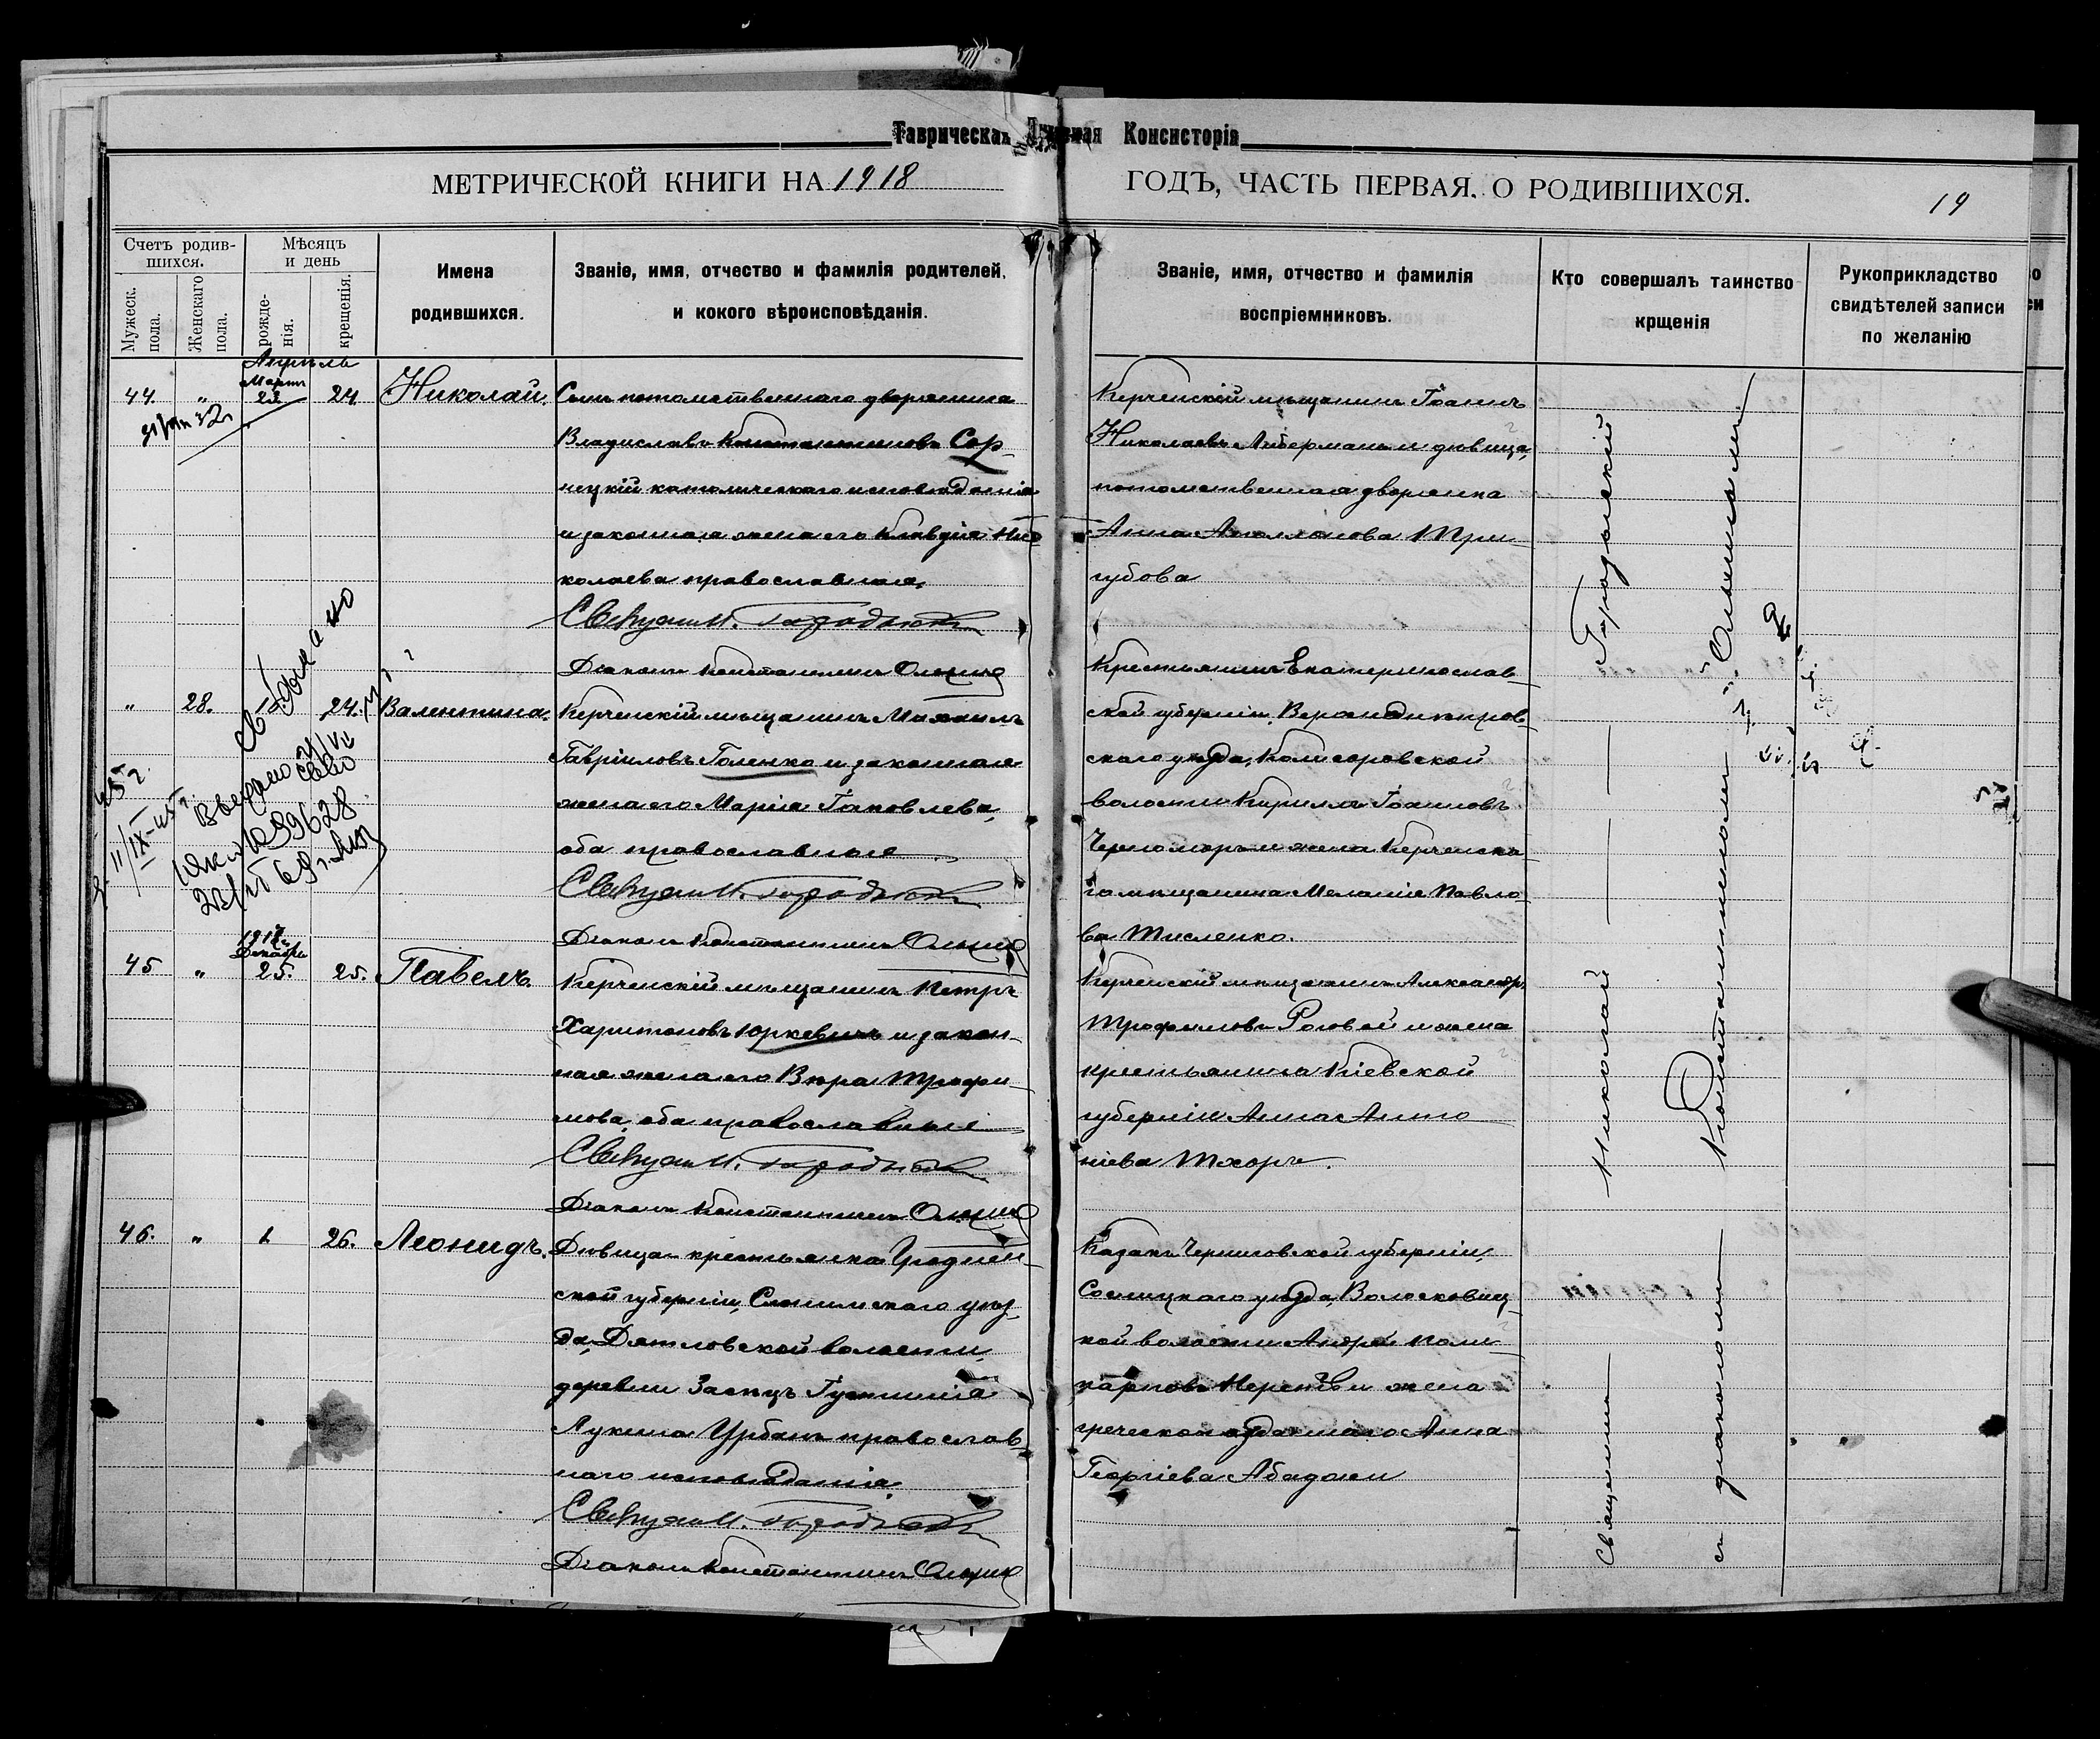 Таврическая Духовная Консисторія
МЕТРИЧЕСКОЙ КНИГИ НА 1918
ГОДЪ, ЧАСТЬ ПЕРВАЯ, О РОДИВШИХСЯ.
19
Счетъ родив-
шихся.
Мужеск.
пола.
Женскаго
пола.
Мѣсяцъ
и день
рожде-
нія.
крещенія.
Имена
родившихся.
Званіе, имя, отчество и фамилія родителей,
и кокого вѣроисповѣданія.
Званіе, имя, отчество и фамилія
воспріемниковъ.
Кто совершалъ таинство
крщенія
Рукоприкладство
свидѣтелей записи
по желанію
Апрѣль
Мартъ
44. " 23 24. Николай.
потомственнаго дворянина
Владиславъ Константиновъ Сор-
нецкій католическаго исповѣданія
и законная жена его Клавдія Ни-
колаева православная.
Діаконъ Константинъ
Керченскій мѣщанинъ Іоаннъ
Николаевъ Либерманъ и дѣвица,
потомственная дворянка
Анна Три-
губова
" 28. 24. Валентина.
Керченскій мѣщанинъ Михаилъ
Гавріиловъ Голенко и законная
жена его Марія Іаковлева,
оба православные
Діаконъ Константинъ
Крестьянинъ Екатеринослав-
ской губерніи, Верхнеднѣпров-
скаго уѣзда,
волости Кириллъ Іоанновъ
и жена Керченска-
го мѣщанина Меланія Павло-
ва Тисленко.
1917 г.
Декабрь
45 " 25. 25. Павелъ
Керченскій мѣщанинъ Петръ
Харитоновъ Юркевичъ и закон-
ная жена его Вѣра Трофи-
мова, оба православные
Діаконъ Константинъ
Керченскій мѣщанинъ Александръ
Трофимовъ Роговой и жена
крестьянина Кіевской
губерніи Анна Анто
ніева Тхоръ.
46. " 1. 26. Леонидъ.
Дѣвица крестьянка Гроднен-
ской губерніи, Слонимскаго уѣз-
да, Дятловской волости,
деревни Засѣцъ Іустинія
Лукина Урбанъ православ-
наго исповѣданія.
Діаконъ Константинъ
Казакъ Черниговской губерніи,
Сосницкаго уѣзда, Волосковиц-
кой волости Андрей Поли-
карповъ и жена
греческоподданнаго Анна
Георгіева
Священникъ Николай Городскій
съ діакономъ Константиномъ